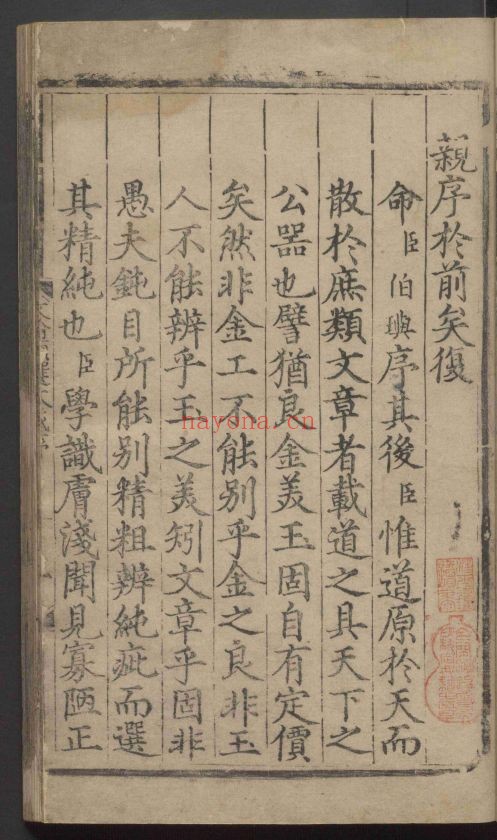 親序於前矣復
命臣伯璵序其後臣惟道原於天而
散於庶類文章者載道之具天下之
公器也譬猶良金美玉固自有定價
矣然非金工不能别乎金之良非玉
人不能辨乎玉之美矧文章乎固非
愚夫鈍目所能别精粗辨純疵而選
其精純也臣學識膚淺聞見寡陋正
hayona.cn